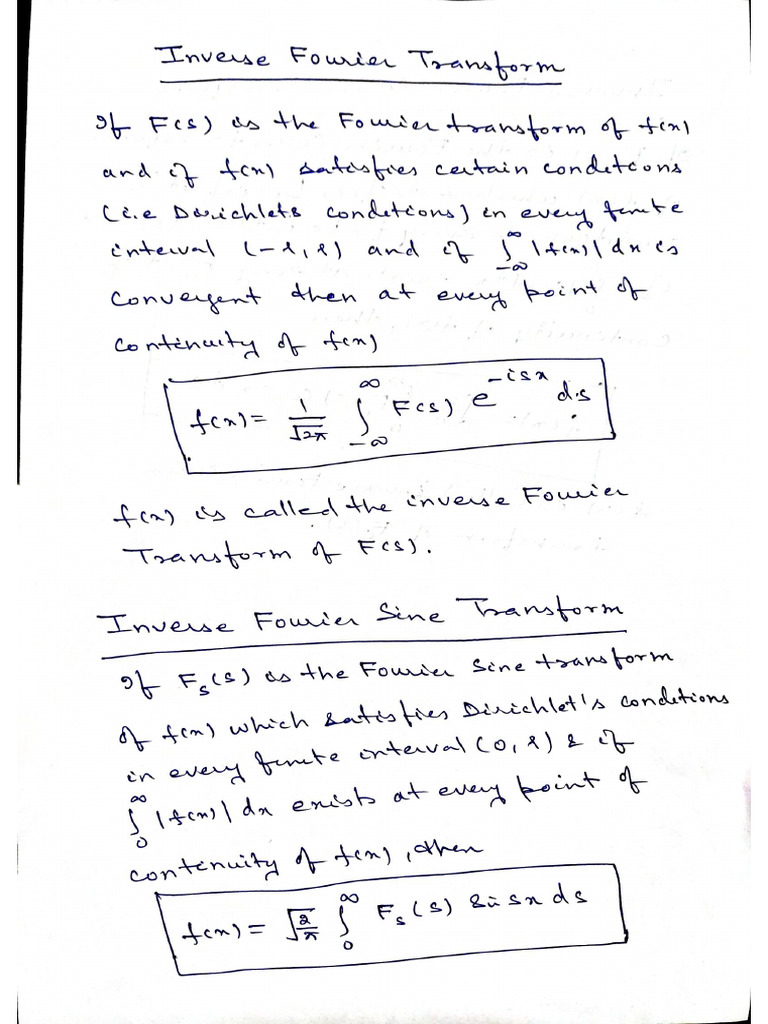 Inverse Fourier Transform
If F(s) is the Fourier transform of f(x)
and if f(x) satisfies certain conditions
(i.e Dirichlets conditions) in every finite
interval (-l, l) and if ∫_{-∞}^{∞} |f(x)| dx is
convergent then at every point of
continuity of f(x)
f(x) = 1/√2π ∫_{-∞}^{∞} F(s) e^{-isx} ds
f(x) is called the inverse Fourier
Transform of F(s).
Inverse Fourier Sine Transform
If F_s(s) is the Fourier Sine transform
of f(x) which satisfies Dirichlet's conditions
in every finite interval (0, l) & if
∫_0^∞ |f(x)| dx exists at every point of
continuity of f(x), then
f(x) = √(2/π) ∫_0^∞ F_s(s) sin sx ds